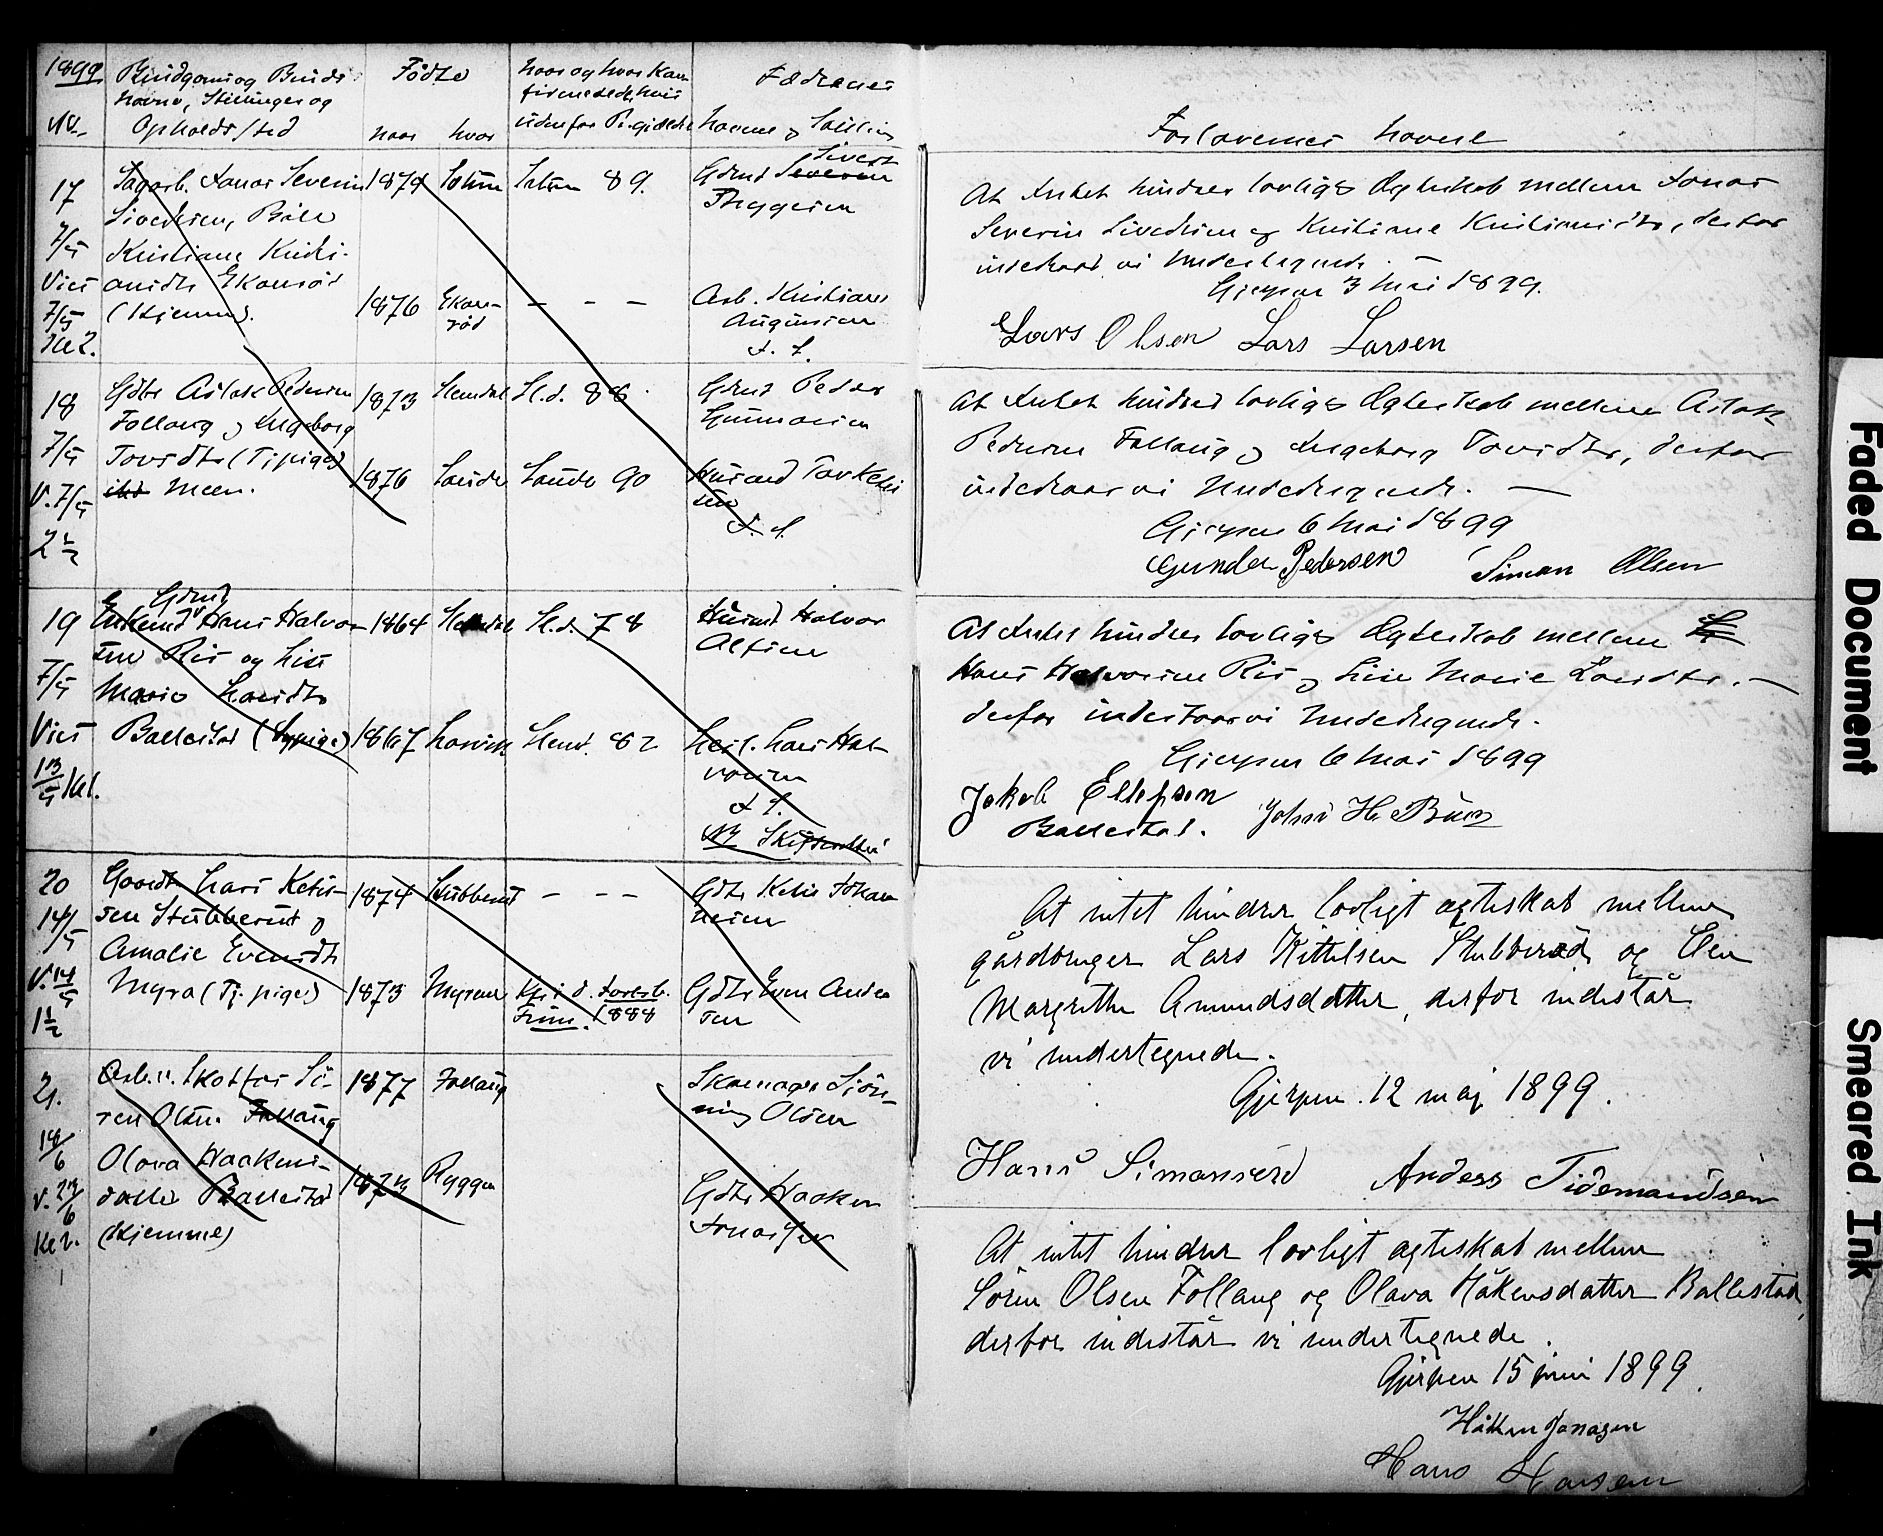 1899
Brudgoms og Bruds
Navne, Stillinger og
Opholdssted
Nr.
Födte
naar hvor
naar og hvor Kon-
firmerede, hvis
udenfor
Fædrenes
navne og Stilling
Forlovernes navne
17
7/5
Vies
7/5
Kl 2.
Jonas Severin
Sivertsen, Böle
Kristiane Kristi-
ansdtr Ekornröd
(Hjemme).
1879 Solum
Solum 89.
Gbrd Severin Sivert
Bryggesen
1876 Ekorn-
röd
- - -
Arb. Kristian
Augunsen
At Intet hindrer lovligt Ægteskab mellem Jonas
Severin Sivertsen og Kristiane Kristiansdtr, derfor
indestaar vi Undertegnede. —
Gjerpen 3 Mai 1899.
Lars Olsen Lars Larsen
18
7/5
V. 7/5
2 1/2
Gdbr Aslak Pedersen
Follaug og Ingeborg
Tovsdtr (Tj.pige)
Meen.
1873 Slemdal
Sl.d. 88.
Gbrd Peder
Gunnarsen
1876 Saude
Saude 90
Husmd Tov Ketil
sen
At Intet hindrer lovligt Ægteskab mellem Aslak
Pedersen Follaug og Ingeborg Tovsdtr, derfor
indestaar vi Undertegnede. —
Gjerpen 6 Mai 1899
Gunder Pedersen Simon Olsen
19
7/5
Vies
13/5 Kl.
Gbrd
Enkemd Hans Halvor-
sen Ris og Lise
Marie Larsdtr
Ballestad (Sypige)
1864 Slemdal
Sl.d. 78
Husmd Halvor
Alfsen
1867 Larvik
Slemd. 82
Lars Hal-
vorsen
At Intet hindrer lovligt Ægteskab mellem
Hans Halvorsen Ris og Lise Marie Larsdtr. —
derfor indestaar vi Undertegnede.
Gjerpen 6 Mai 1899
Jakob Ellefsen
Ballestad. John H. Buer
20
14/5
V. 14/5
1 1/2
Gaardbr Lars Ketil-
sen Stubberud og
Amalie Evensdtr
Myra (Tj. pige)
1874 Stubberud
- - -
Gdbr Ketil Johan
nesen
1873 Myren
1888
Gdbr Even Ander
sen
At intet hindrer lovligt ægteskab mellem
gårdbruger Lars Kittilsen Stubberød og Elen
Margrethe Amundsdatter, derfor indestår
vi undertegnede.
Gjerpen. 12 maj 1899.
Hans Simonsen Anders Tidemandsen
21.
18/6
V. 23/6
Kl 2.
Arb. v. Skotfos Sö-
ren Olsen Follaug
Olava Haakens-
datter Ballestad
(Hjemme)
1877 Follaug
Skomager Sjön-
ning Olsen
1873 Ryggen
Gdbr Haaken
Jonassen
At intet hindrer lovligt ægteskab mellem
Sören Olsen Follaug og Olava Håkensdatter Ballestad,
derfor indestår vi undertegnede.
Gjerpen 15 juni 1899.
Håken Jonasen
Hans Hansen
Faded Document
Smeared Ink